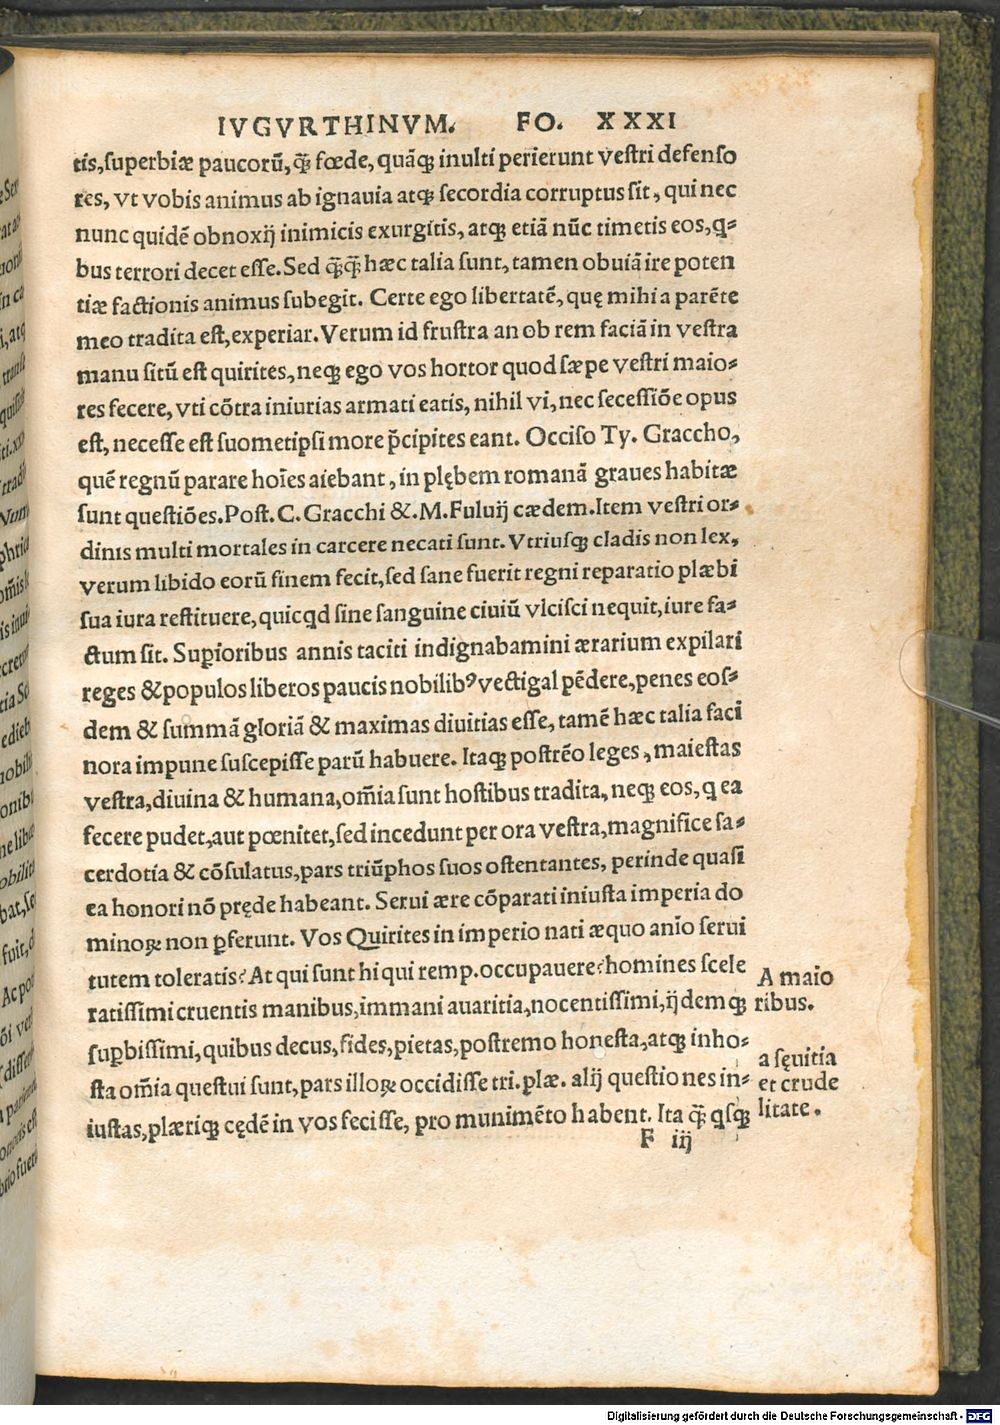 IVGVRTHINVM. FO. XXXI
tis,superbiæ paucorũ,q̃ fœde, quãqꝫ inulti perierunt vestri defenso
res, vt vobis animus ab ignauia atqꝫ secordia corruptus sit, qui nec
nunc quidẽ obnoxij inimicis exurgitis, atqꝫ etiã nũc timetis eos,q-
bus terrori decet esse.Sed q̃q̃ hæc talia sunt, tamen obuiã ire poten
tiæ factionis animus subegit. Certe ego libertatẽ, quę mihi a parẽte
meo tradita est, experiar. Verum id frustra an ob rem faciã in vestra
manu sitũ est quirites, neqꝫ ego vos hortor quod sæpe vestri maio-
res fecere, vti cõtra iniurias armati eatis, nihil vi, nec secessiõe opus
est, necesse est suometipsi more p̃cipites eant. Occiso Ty. Graccho,
quẽ regnũ parare hoĩes aiebant, in plębem romanã graues habitæ
sunt questiões.Post.C.Gracchi &.M.Fuluij cædem.Item vestri or-
dinis multi mortales in carcere necati sunt. Vtriusqꝫ cladis non lex,
verum libido eorũ finem fecit, sed sane fuerit regni reparatio plæbi
sua iura restituere, quicqd sine sanguine ciuiũ vlcisci nequit, iure fa-
ctum sit. Supioribus annis taciti indignabamini ærarium expilari
reges & populos liberos paucis nobilibꝰ vectigal pẽdere, penes eos-
dem & summã gloriã & maximas diuitias esse, tamẽ hæc talia faci
nora impune suscepisse parũ habuere. Itaqꝫ postrẽo leges, maiestas
vestra, diuina & humana, om̃ia sunt hostibus tradita, neqꝫ eos, q ea
fecere pudet, aut pœnitet, sed incedunt per ora vestra, magnifice sa-
cerdotia & cõsulatus, pars triũphos suos ostentantes, perinde quasi
ea honori nõ pręde habeant. Serui ære cõparati iniusta imperia do
minoꝝ non ꝑferunt. Vos Quirites in imperio nati æquo anĩo serui
tutem toleratis? At qui sunt hi qui remp.occupauere? homines scele
ratissimi cruentis manibus, immani auaritia, nocentissimi, ijdemqꝫ
suꝑbissimi, quibus decus, fides, pietas, postremo honesta, atqꝫ inho-
sta om̃ia questui sunt, pars illoꝝ occidisse tri. plæ. alij questiones in-
iustas, plæriqꝫ cędẽ in vos fecisse, pro munimẽto habent. Ita q̃ qsqꝫ
F iij
A maio
ribus.
a sęuitia
et crude
litate.
Digitalisierung gefördert durch die Deutsche Forschungsgemeinschaft - DFG